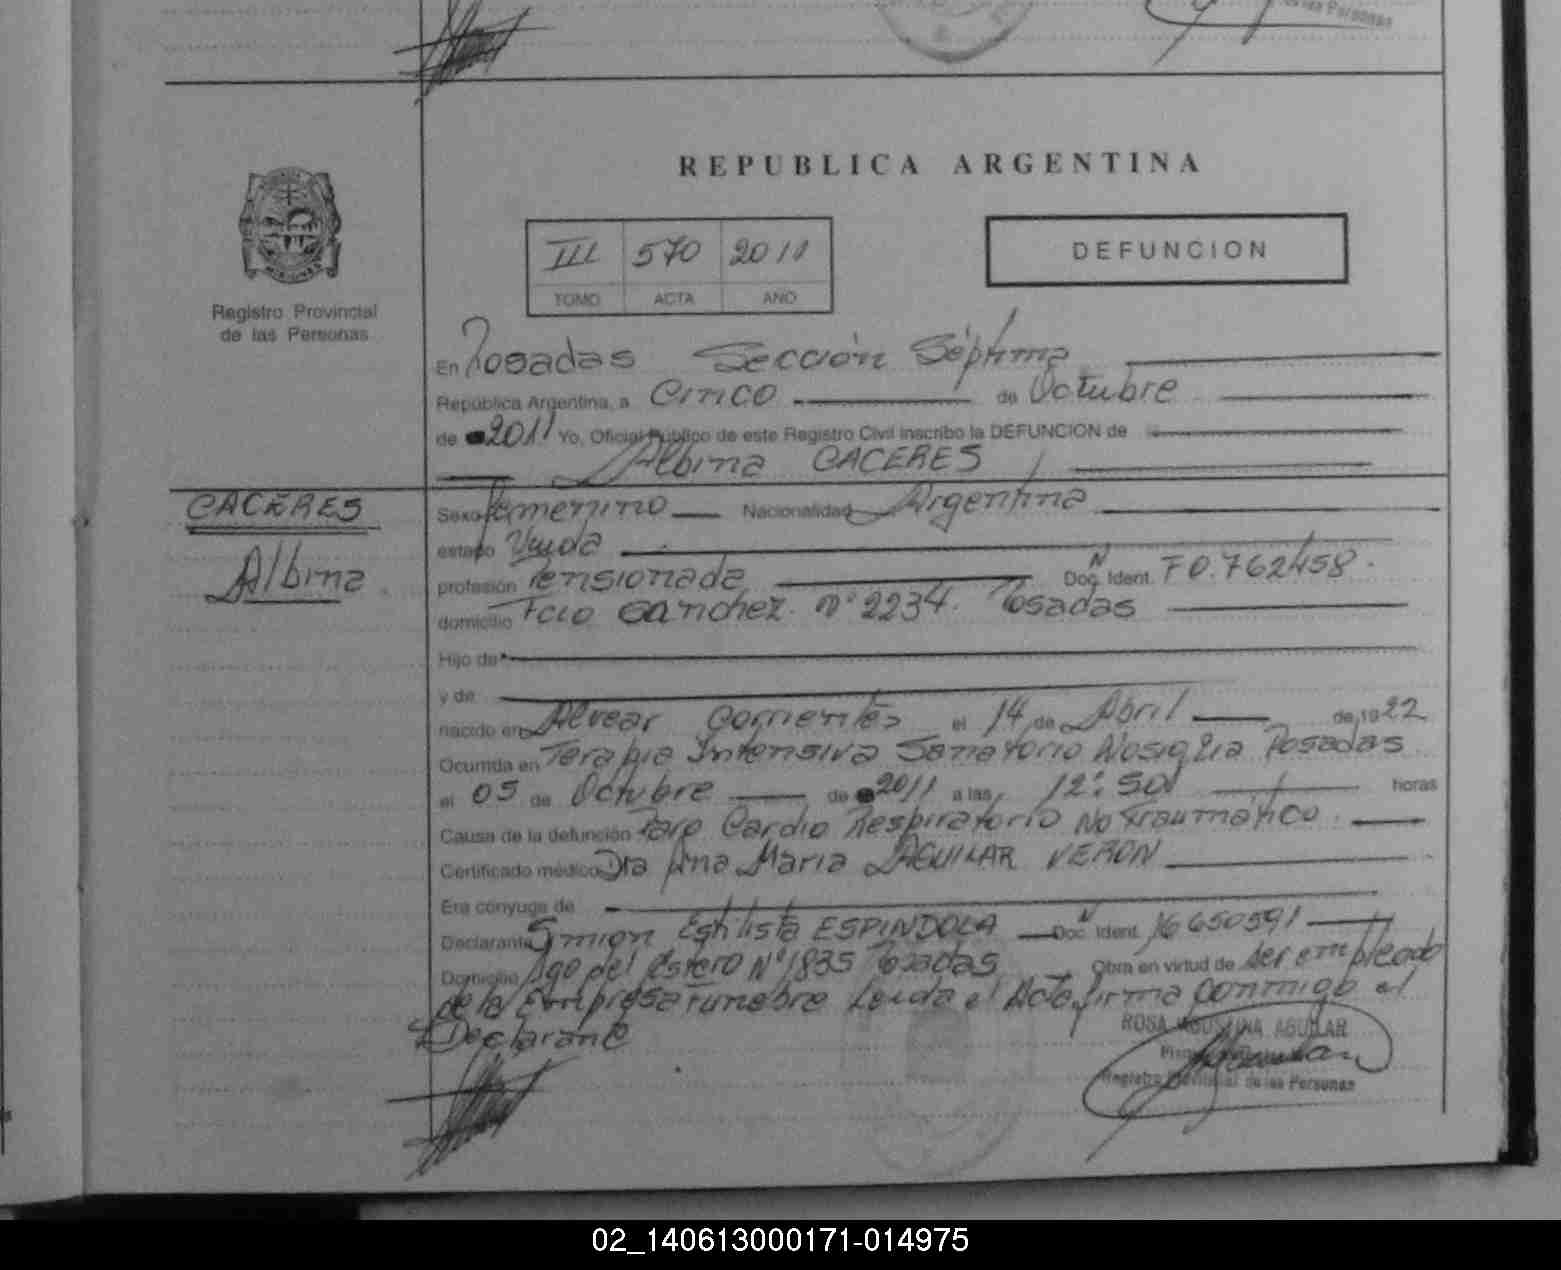 de las Personas
REPUBLICA ARGENTINA
III 570 2011
TOMO ACTA AÑO
DEFUNCION
Registro Provincial
de las Personas
En Posadas Sección Séptima
República Argentina, a Cinco de Octubre
de 2011 Yo, Oficial Público de este Registro Civil inscribo la DEFUNCION de
Albina CACERES
CACERES
Albina
Sexo femenino Nacionalidad Argentina
estado Viuda
profesión Pensionada Doc. Ident. N F0.762458.
domicilio Fcio Sanchez. N° 2234. Posadas
Hijo de
y de
nacido en Alvear Corrientes el 14 de Abril de 1922
Ocurrida en Terapia Intensiva Sanatorio Nosiglia Posadas
el 05 de Octubre de 2011 a las 12:50 horas
Causa de la defunción Paro Cardio Respiratorio No Traumático.
Certificado médico Dra Ana Maria AGUILAR VERON
Era cónyuge de
Declarante ESPINDOLA Doc. Ident. N 16650591
Domicilio Sgo del Estero N° 1835 Posadas Obra en virtud de ser empleado
de la Empresa Funebre Leida el Acta firma conmigo el
Declarante
ROSA AGUSTINA AGUILAR
Registro Provincial de las Personas
02_140613000171-014975